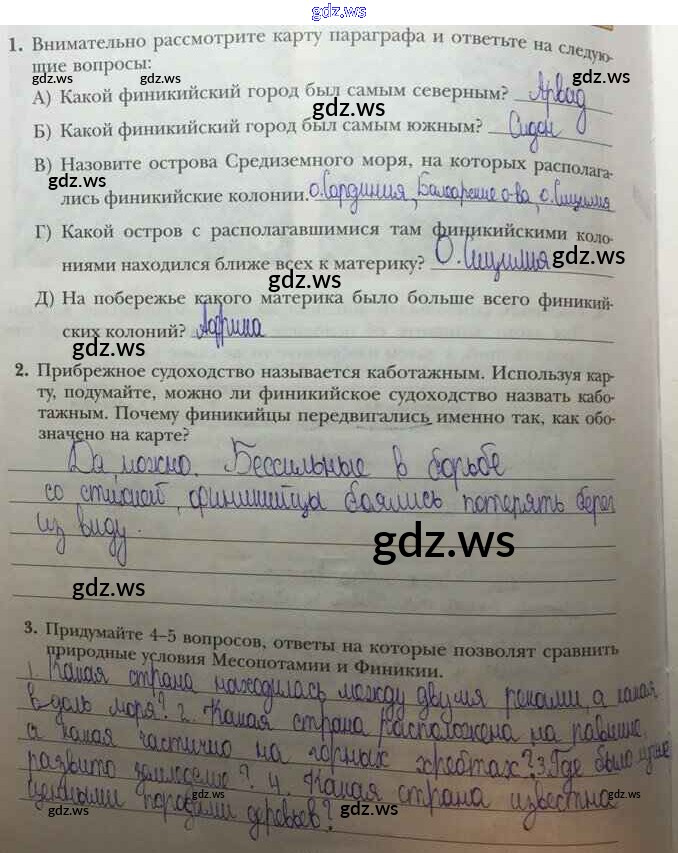 gdz.ws
1. Внимательно рассмотрите карту параграфа и ответьте на следую-
щие вопросы:
gdz.ws gdz.ws
А) Какой финикийский город был самым северным? Арвад
gdz.ws
Б) Какой финикийский город был самым южным? Сидон
В) Назовите острова Средиземного моря, на которых распола-
gdz.ws
лись финикийские колонии. о.Сардиния, Балеарские о-ва, о. Сицилия
Г) Какой остров с располагавшимися там финикийскими коло-
gdz.ws
ниями находился ближе всех к материку? О. Сицилия
gdz.ws
Д) На побережье какого материка было больше всего финикий-
ских колоний? Африка
gdz.ws
2. Прибрежное судоходство называется каботажным. Используя кар-
ту, подумайте, можно ли финикийское судоходство назвать кабо-
тажным. Почему финикийцы передвигались именно так, как обо-
значено на карте?
Да, можно. Бессильные в борьбе
со стихией, финикийцы боялись потерять берег
из виду.
gdz.ws
gdz.ws
3. Придумайте 4–5 вопросов, ответы на которые позволят сравнить
природные условия Месопотамии и Финикии.
1. Какая страна находилась между двумя реками, а какая
gdz.ws gdz.ws
вдоль моря? 2. Какая страна расположена на равнине,
а какая частично на горных хребтах? 3. Где было лучше
развито земледелие? 4. Какая страна известна
gdz.ws gdz.ws
ценными породами деревьев?
gdz.ws